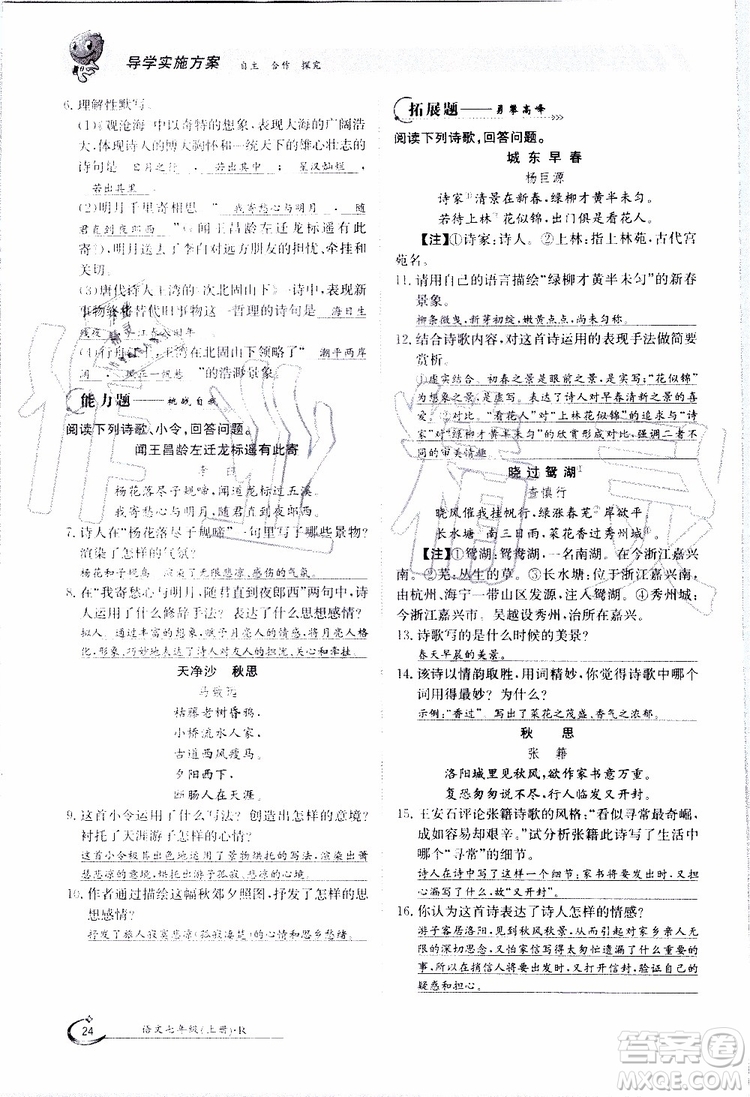 导学实施方案 自主 合作 探究
6. 理解性默写。
(1)《观沧海》中以奇特的想象，表现大海的广阔浩
大，体现诗人博大胸怀和统一天下的雄心壮志的
诗句是 日月之行，若出其中；星汉灿烂，
若出其里。
(2) 明月千里寄相思 “我寄愁心与明月，随
君直到夜郎西”(《闻王昌龄左迁龙标遥有此
寄》)，明月送去了李白对远方朋友的担忧、牵挂和
关切。
(3) 唐代诗人王湾的《次北固山下》诗中揭示新
事物终将替代旧事物这一哲理的诗句是 海日生
残夜，江春入旧年。
(4) 行舟江中，王湾在北固山下领略了“潮平两岸
阔，风正一帆悬”的浩渺景象。
能力题——挑战自我
阅读下列诗歌、小令，回答问题。
闻王昌龄左迁龙标遥有此寄
李白
杨花落尽子规啼，闻道龙标过五溪。
我寄愁心与明月，随君直到夜郎西。
7. 诗人在“杨花落尽子规啼”一句里写了哪些景物？
渲染了怎样的气氛？
杨花和子规。渲染了凄凉、哀愁、感伤的气氛。
8. 在“我寄愁心与明月，随君直到夜郎西”两句中，诗
人运用了什么修辞手法？表达了什么思想感情？
拟人。形象生动，赋予月亮以人的情感，将月亮人格
化，形象、巧妙地表达了对友人的关心和牵挂。
天净沙 秋思
马致远
枯藤老树昏鸦，
小桥流水人家，
古道西风瘦马。
夕阳西下，
断肠人在天涯。
9. 这首小令运用了什么写法？创造出怎样的意境？
衬托了天涯游子怎样的心情？
这首小令极其出色地运用了景物烘托的写法，渲染出萧
瑟悲凉的意境，衬托了天涯游子孤寂、悲凉的心情。
10. 作者通过描绘这幅秋郊夕照图，抒发了怎样的思
想感情？
抒发了旅人寂寞悲凉(孤寂凄楚)和思乡愁绪。
拓展题——勇攀高峰
阅读下列诗歌，回答问题。
城东早春
杨巨源
诗家①清景在新春，绿柳才黄半未匀。
若待上林②花似锦，出门俱是看花人。
【注】①诗家：诗人。②上林：指上林苑，古代宫
苑名。
11. 请用自己的语言描绘“绿柳才黄半未匀”的新春
景象。
柳条微曳，新芽初绽，嫩黄点点，尚未匀称。
12. 结合诗歌内容，对这首诗运用的表现手法做简要
赏析。
①虚实结合。初春之景是眼前之景，为实写；“花似锦”
之景是想象，是虚写。表达了诗人对早春清新之景的喜
爱。②对比。“看花人”对“上林花似锦”的追求与“诗
家”对“绿柳才黄半未匀”的欣赏形成对比，强调二者不
同的审美情趣。
晓过鸳湖①
查慎行
晓风催我挂帆行，绿涨春芜②岸欲平。
长水塘③南三日雨，菜花香过秀州城④。
【注】①鸳湖：鸳鸯湖，一名南湖。在今浙江嘉兴
南。②芜，丛生的草。③长水塘：指长水，一条河，
由杭州、海宁一带山区发源，注入鸳湖。④秀州城：
今浙江嘉兴市。吴越设秀州，治所在嘉兴。
13. 诗歌写的是什么时候的美景？
春天早晨的美景。
14. 该诗以情韵取胜，用词精妙，你觉得诗歌中哪个
词用得最妙？为什么？
示例：“香过”，写出了菜花之茂盛、香气之浓郁。
秋思
张籍
洛阳城里见秋风，欲作家书意万重。
复恐匆匆说不尽，行人临发又开封。
15. 王安石评论张籍诗歌的风格：“看似寻常最奇崛，
成如容易却艰辛。”试分析张籍此诗写了生活中
哪个“寻常”的细节。
诗人在诗中截取了“欲作家书”“临发又开封”的细节，把
担心漏写了什么，故又开封检查的细节写了出来。
16. 你认为这首诗表达了诗人怎样的情感？
游子客居洛阳，见到秋风秋景，引起对家乡亲人的无
限的思念之情，又怕家信写得太匆忙遗漏了没有写进
的内容，所以在捎信人将要出发时，又打开信封，验证自己的
疑惑和担心。
24 语文七年级(上册)·R
答案圈
MXQE.COM
作业精灵